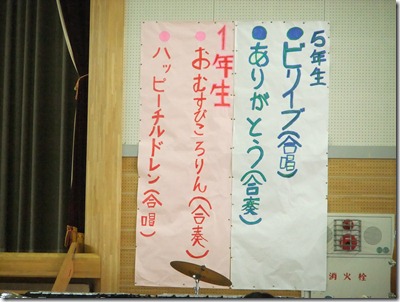 5年生
ビリイブ(合唱)
ありがとう(合奏)
1年生
おむすびころりん(合奏)
ハッピーチルドレン(合唱)
消火栓